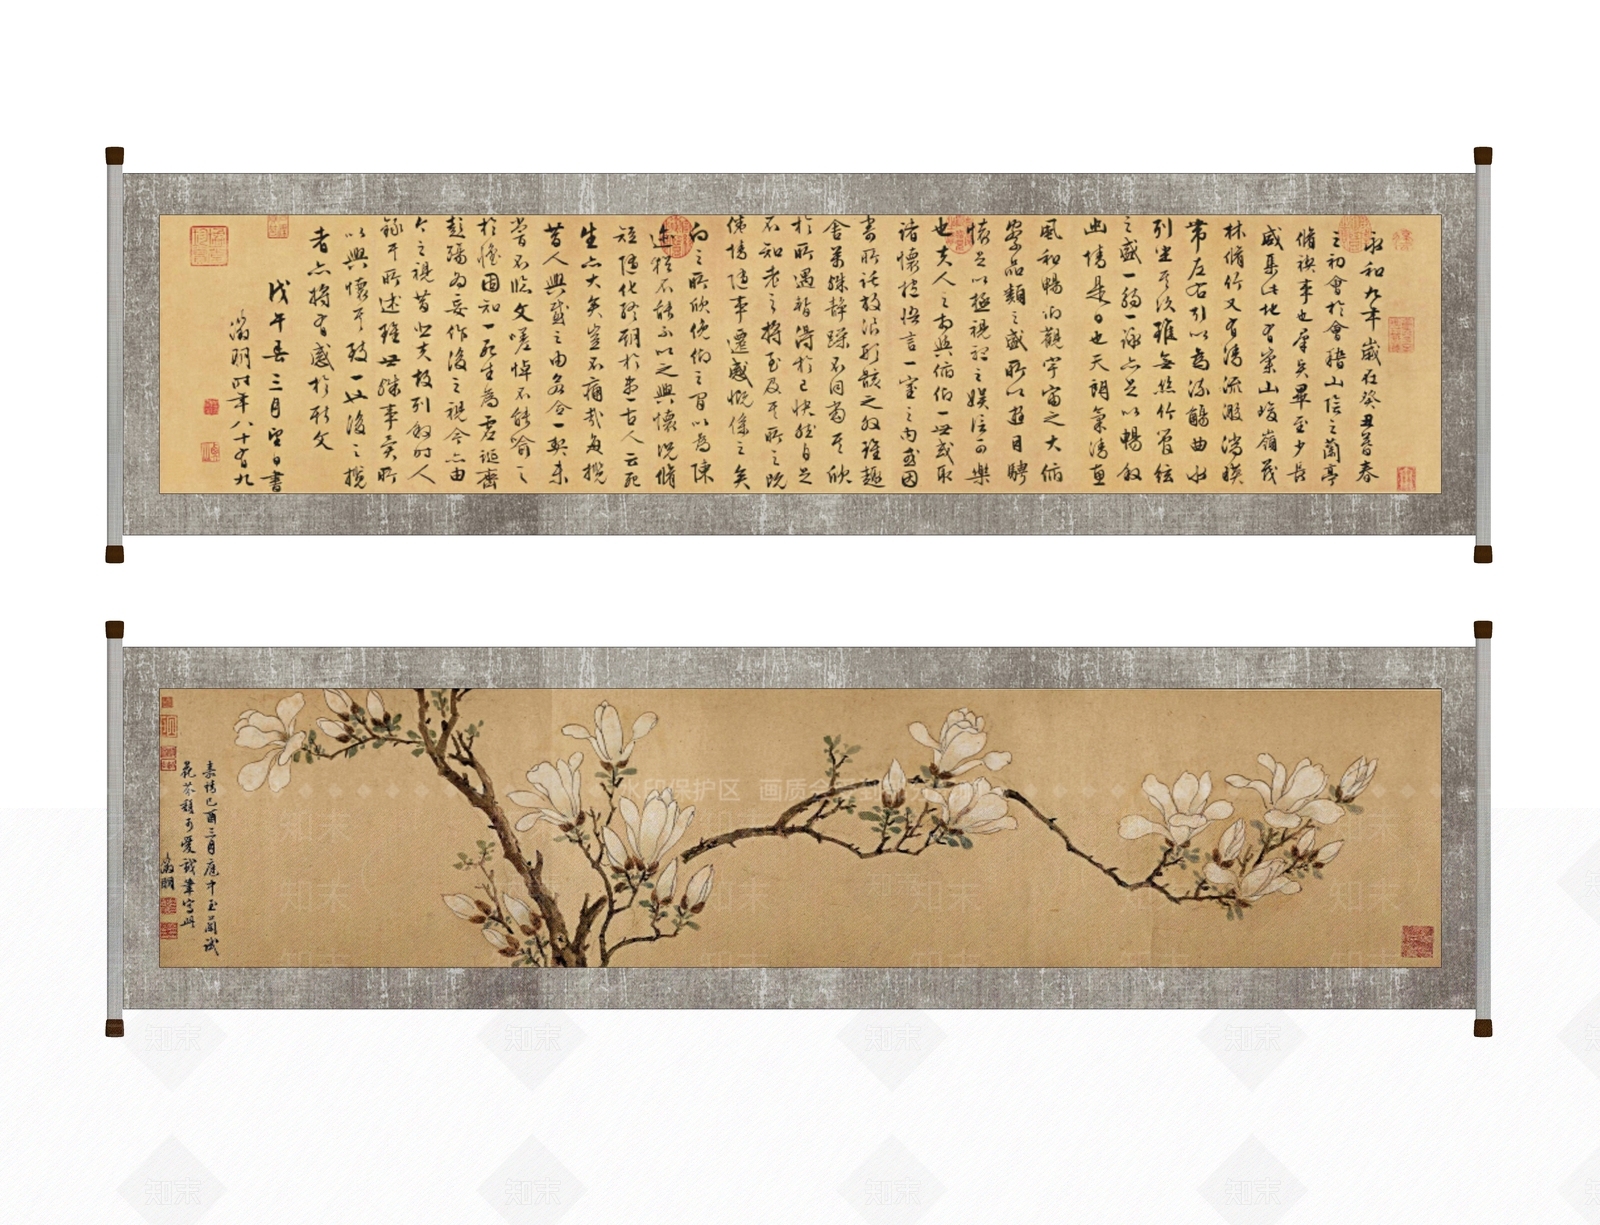 永和九年歲在癸丑暮春
之初會於會稽山陰之蘭亭
脩禊事也羣賢畢至少長
咸集此地有崇山峻嶺茂
林脩竹又有清流激湍暎
帶左右引以為流觴曲水
列坐其次雖無絲竹管絃
之盛一觴一詠亦足以暢敘
幽情是日也天朗氣清惠
風和暢仰觀宇宙之大俯
察品類之盛所以遊目騁
懷足以極視聽之娛信可樂
也夫人之相與俯仰一世或取
諸懷抱悟言一室之內或因
寄所託放浪形骸之外雖趣
舍萬殊靜躁不同當其欣
於所遇暫得於己快然自足
不知老之將至及其所之既
倦情隨事遷感慨係之矣
向之所欣俛仰之間以為陳
迹猶不能不以之興懷況脩
短隨化終期於盡古人云死
生亦大矣豈不痛哉每攬
昔人興感之由若合一契未
嘗不臨文嗟悼不能喻之
於懷固知一死生為虛誕齊
彭殤為妄作後之視今亦由
今之視昔悲夫故列敘時人
錄其所述雖世殊事異所
以興懷其致一也後之攬
者亦將有感於斯文
戊午春三月望日書
徵明時年八十有九
嘉靖己酉三月庭中玉蘭試
花芬馥可愛戲筆寫此
徵明
水印保护区 画质
知末